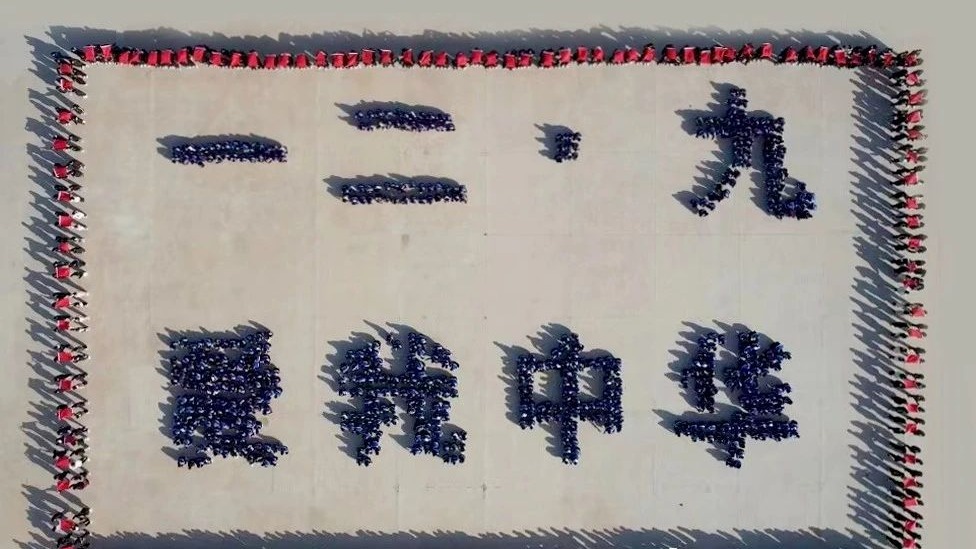 一二·九
爱我中华